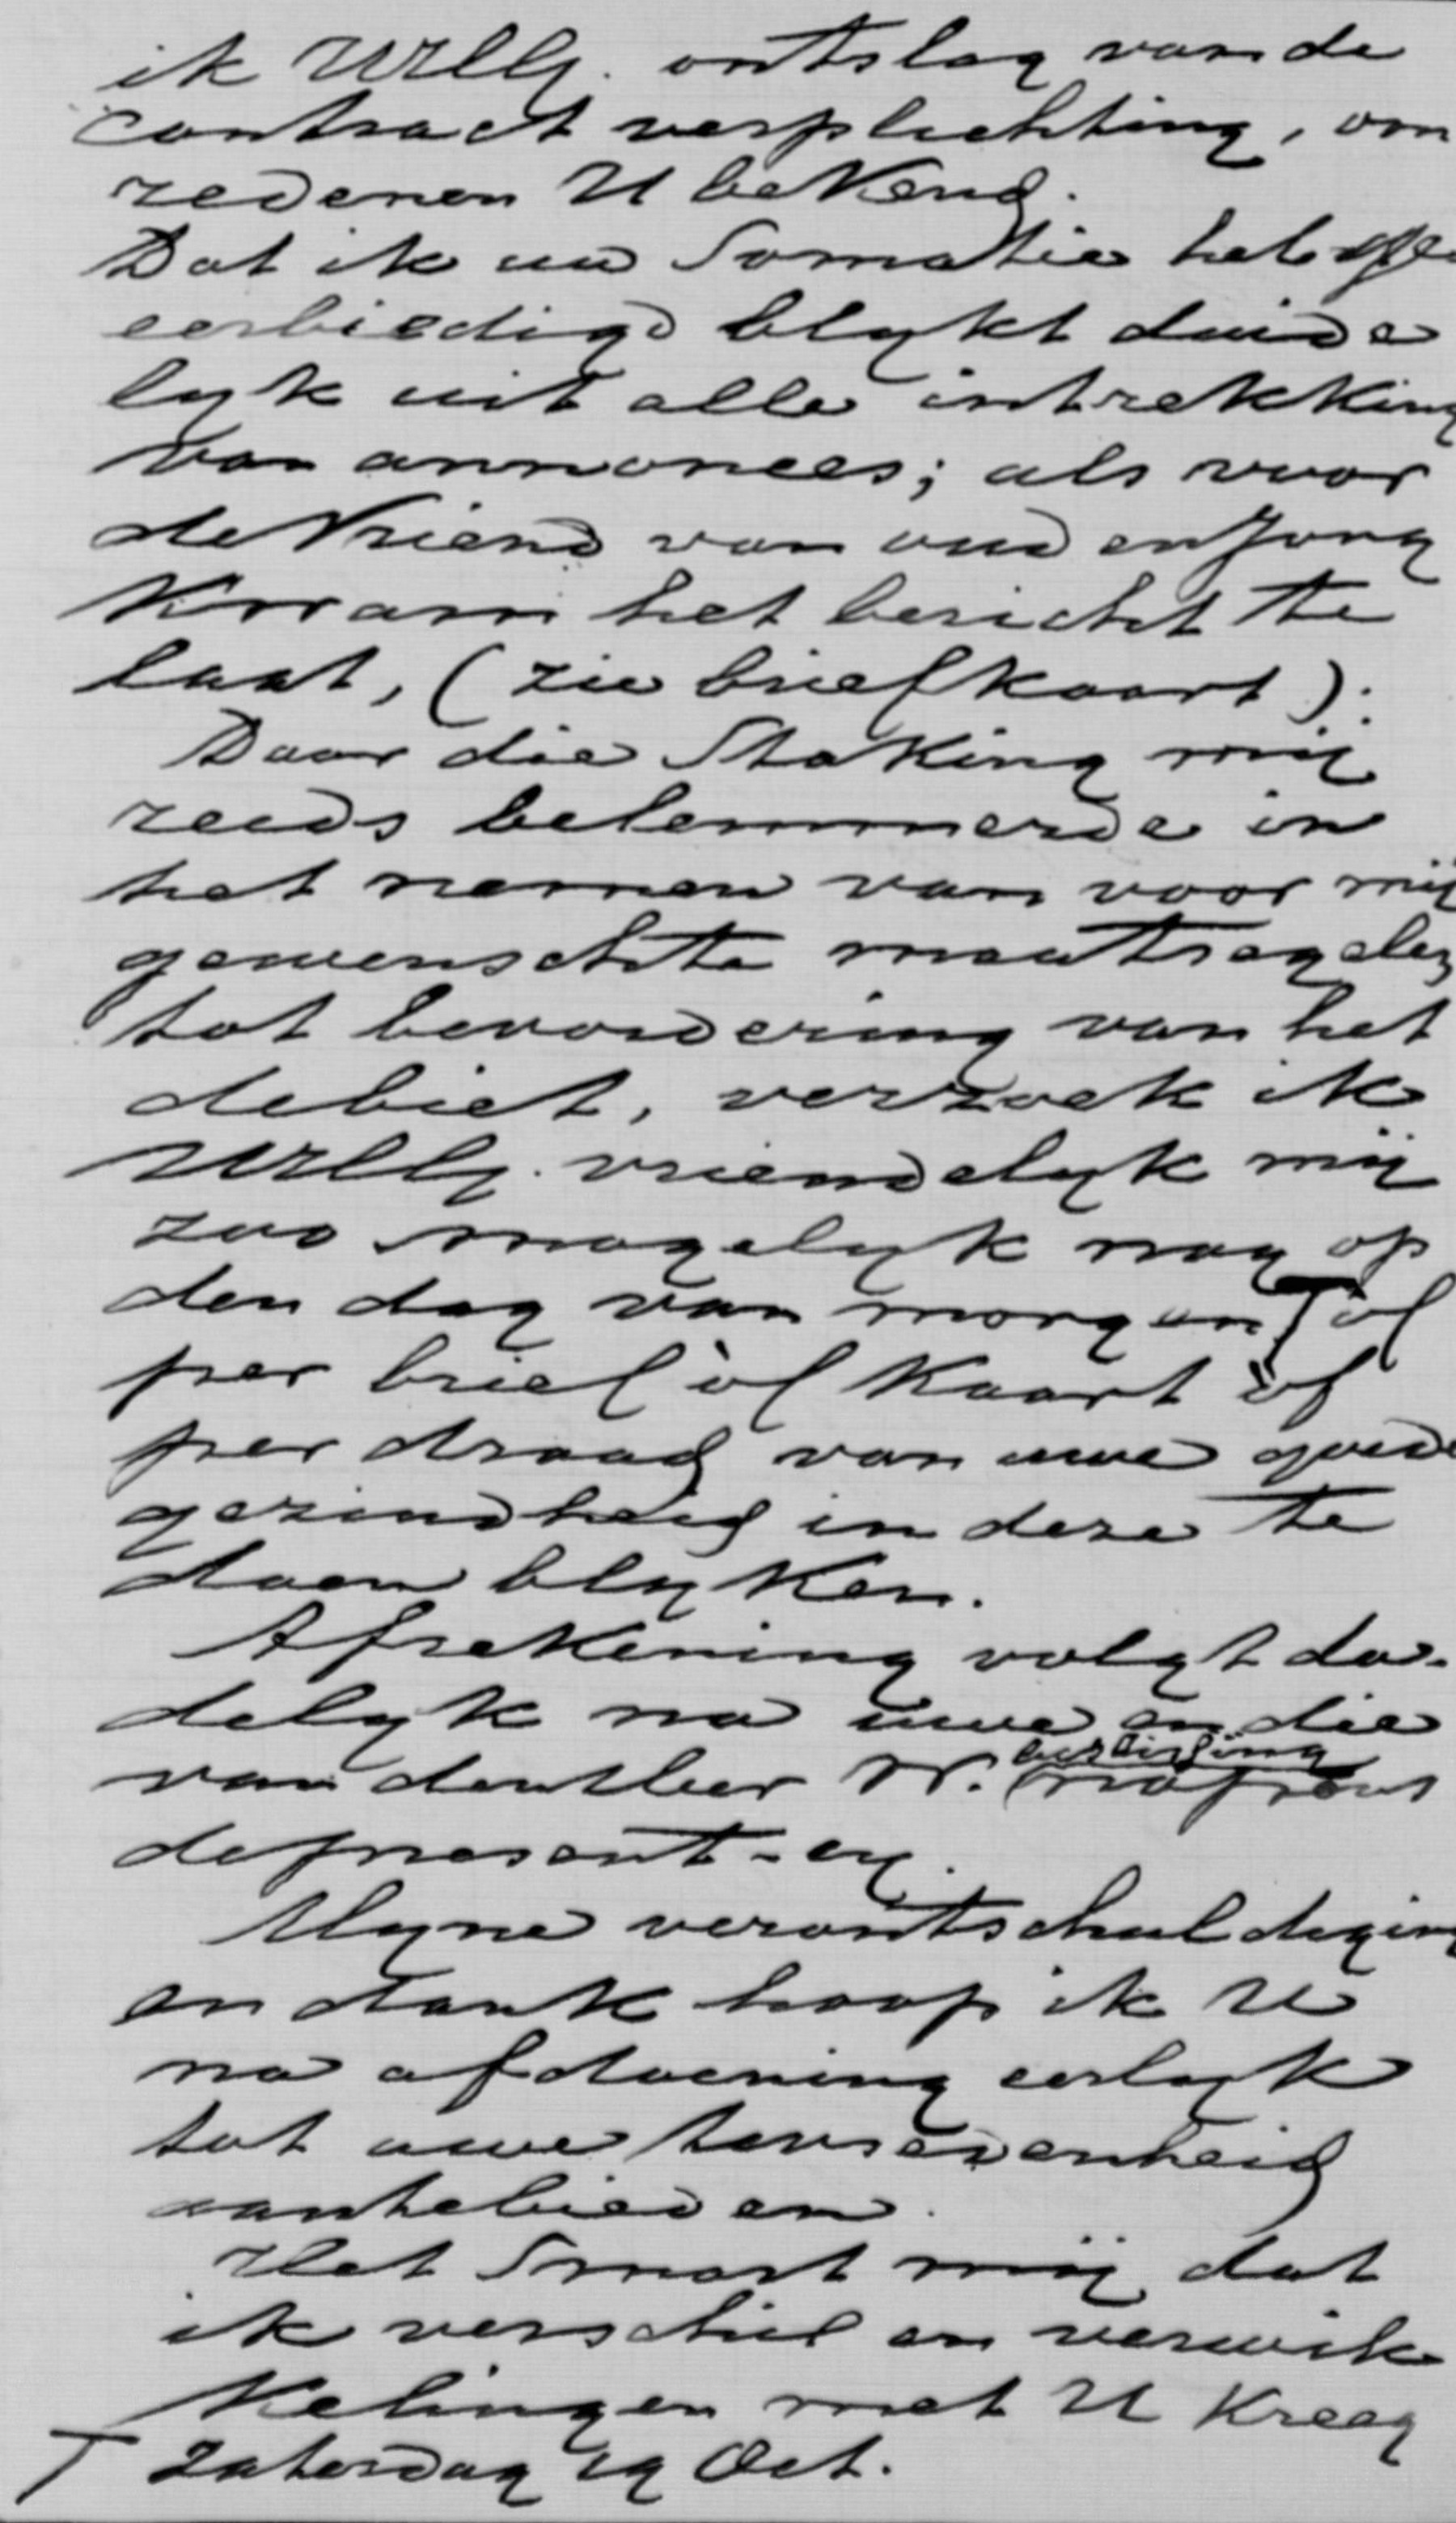 ik UEdG. ontslag van de
contract verplichting, om
redenen U bekend.
Dat ik uw Somatie heb ge
eerbiedigd blykt duide
lyk uit alle intrekking
van annonces; als voor
de Vriend van oud en Jong
Kwam het bericht te
laat, (zie briefkaart).
Daar die Staking mij
reeds belemmerde in
het nemen van voor mij
gewenschte maatregelen
tot bevordering van het
debiet, verzoek ik
UEdG. vriendelyk mij
zoo mogelyk nog op
den dag van morgen T òf
per brief òf Kaart òf
per draad van uwe goede
gezindheid in deze te
doen blyken.
Afrekening volgt da-
delyk na uwe en die
beslissing
van den Heer W.
Myne verontschuldiging
en dank hoop ik U
na afdoening eerlyk
tot uwe tevredenheid
aantebieden.
Het Smart mij dat
ik verschil en verwik
kelingen met U Kreeg
T Zaterdag 19 Oct.